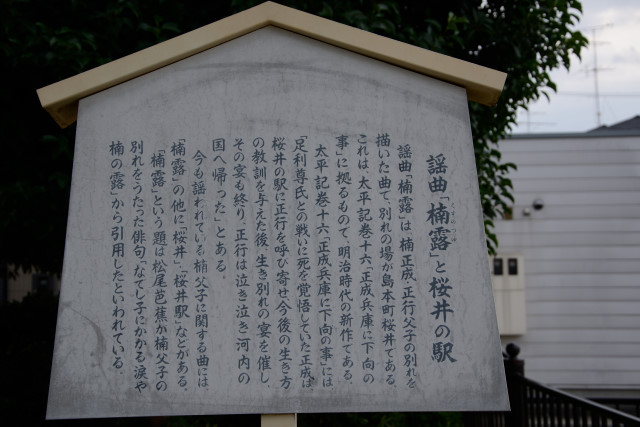 謡曲「楠露」と桜井の駅
くすのつゆ
謡曲「楠露」は、楠正成、正行父子の別れを
描いた曲で、別れの場が島本町桜井である。
これは、太平記巻十六「正成兵庫に下向の
事」に拠るもので、明治時代の新作である。
太平記巻十六「正成兵庫に下向の事」には、
「足利尊氏との戦いに死を覚悟していた正成は、
桜井の駅に正行を呼び寄せ今後の生き方
の教訓を与えた後、生き別れの宴を催し、
その宴も終り、正行は泣き泣き河内の
国へ帰った」とある。
今も謡われている楠父子に関する曲には
「楠露」の他に「桜井」「桜井駅」などがある。
「楠露」という題は松尾芭蕉が楠父子の
別れをうたった俳句、「なでし子にかかる涙や
楠の露」から引用したといわれている。